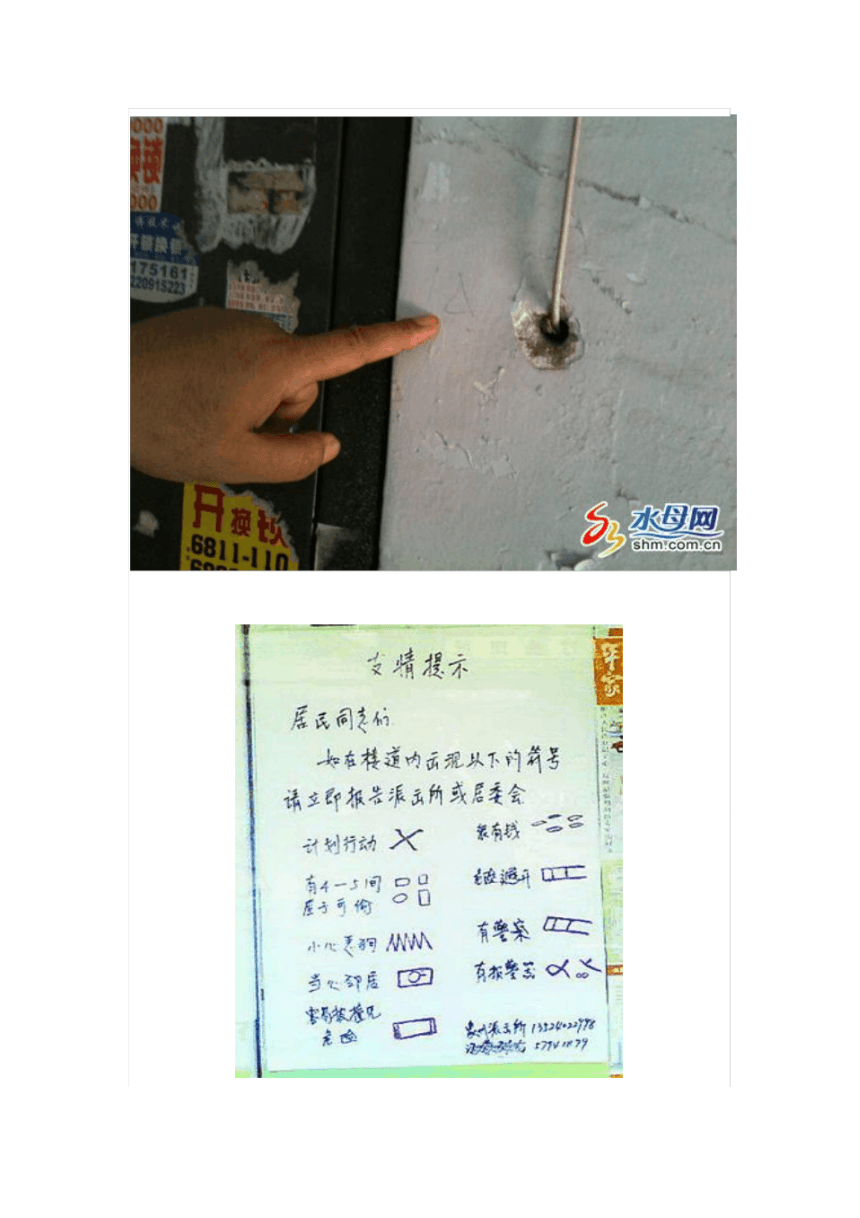 000
换锁
000
开锁换锁
175161
220915223
开换锁
6811-110
水母网
shm.com.cn
友情提示
居民同志们
如在楼道内出现以下的符号
请立即报告派出所或居委会
计划行动
很有钱
有4—5间
屋子可偷
避开
小心恶狗
有警察
当心邻居
有报警器
容易被撞见
危险
派出所 13524022998